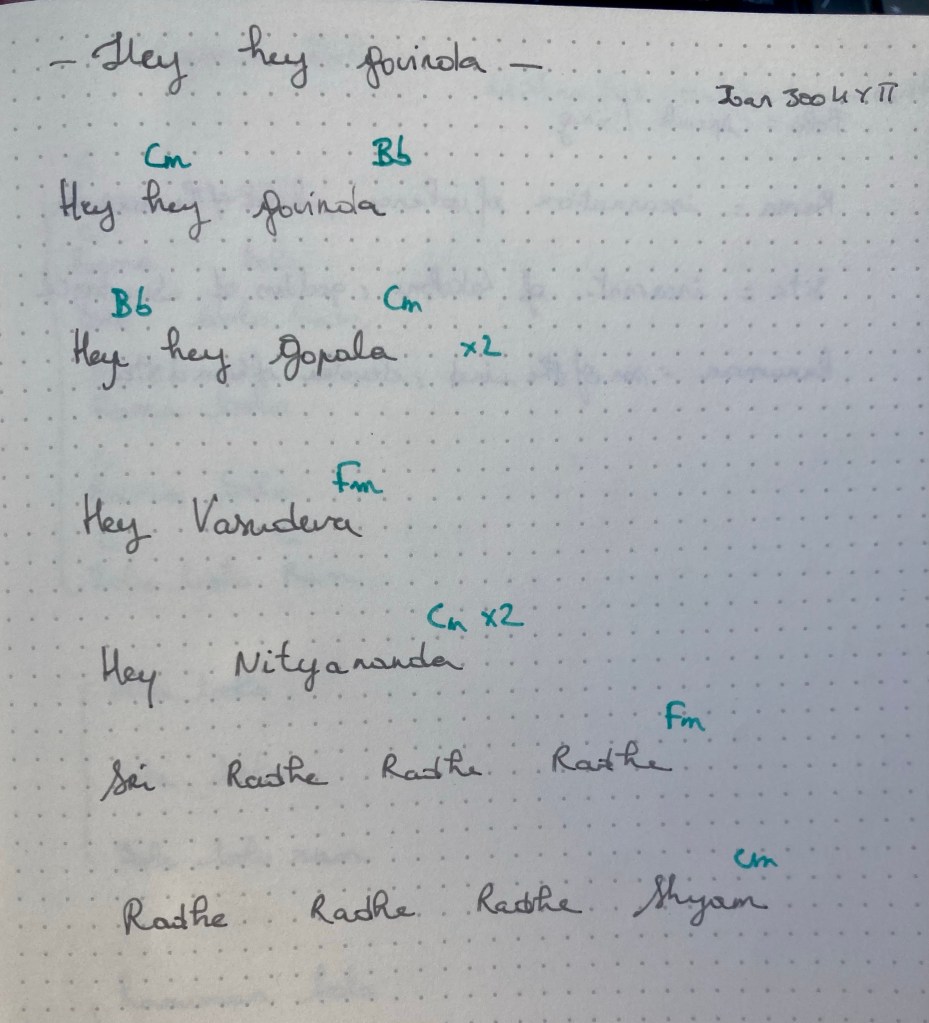 - Hey hey Govinda -
Cm Bb
Hey hey Govinda
Bb Cm
Hey hey Gopala x2
Fm
Hey Vasudeva
Cm x2
Hey Nityananda
Fm
Sri Radhe Radhe Radhe
Cm
Radhe Radhe Radhe Shyam